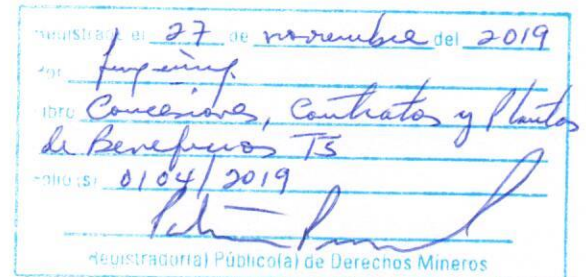 Registrada el 27 de noviembre del 2019
Por
Libro Concesiones, Contratos y Plantas
de Beneficios T5
Folio (s) 0104/2019
Registrador(a) Público(a) de Derechos Mineros